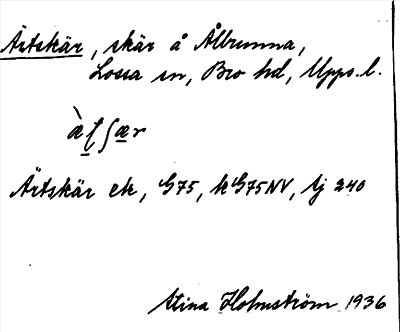 Ärtskär, skär å Ålbrunna,
Lossa sn, Bro hd, Upps. l.
Ärtskär ek, G75, k G75NV, tj 240
Stina Holmström 1936